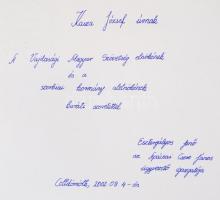 Kasza József úrnak
A Vajdasági Magyar Szövetség elnökének
és a
szerbiai kormány alelnökének
baráti szeretettel
Esztergályos Jenő
az Apáczai Csere János
ügyvezető igazgatója
Celldömölk, 2002. 09. 4-én